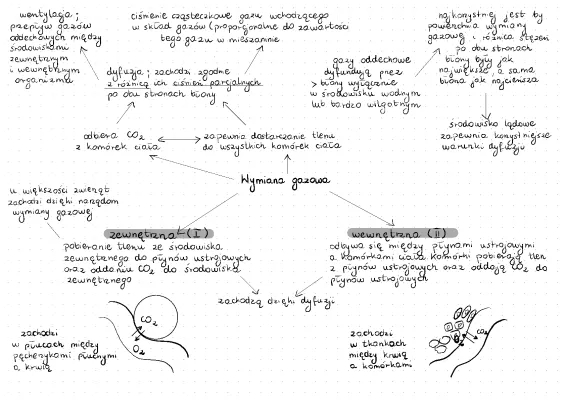 wentylacja;
przepływ gazów
oddechowych między
środowiskami
zewnętrznym
i wewnętrznym
organizmu
ciśnienie cząsteczkowe gazu wchodzącego
w skład gazów (proporcjonalne do zawartości
tego gazu w mieszaninie
najkorzystniej jest by
powierzchnia wymiany
gazowej i różnica stężeń
po obu stronach
błony były jak
największe, a sama
błona jak najcieńsza
gazy oddechowe
dyfundują przez
> błony wyłącznie
w środowisku wodnym
lub bardzo wilgotnym
dyfuzja; zachodzi zgodnie
z różnicą ich ciśnień parcjalnych
po obu stronach błony
środowisko lądowe
zapewnia korzystniejsze
warunki dyfuzji
odbiera CO2
z komórek ciała
zapewnia dostarczanie tlenu
do wszystkich komórek ciała
Wymiana gazowa
u większości zwierząt
zachodzi dzięki narządom
wymiany gazowej
zewnętrzna (I)
pobieranie tlenu ze środowiska
zewnętrznego do płynów ustrojowych
oraz oddaniu CO2 do środowiska
zewnętrznego
wewnętrzna (II)
odbywa się między płynami ustrojowymi
a komórkami ciała komórki pobierają tlen
z płynów ustrojowych oraz oddają CO2 do
płynów ustrojowych
zachodzą dzięki dyfuzji
zachodzi
w płucach między
pęcherzykami płucnymi
a krwią
CO2
O2
zachodzi
w tkankach
między krwią
a komórkami
CO2